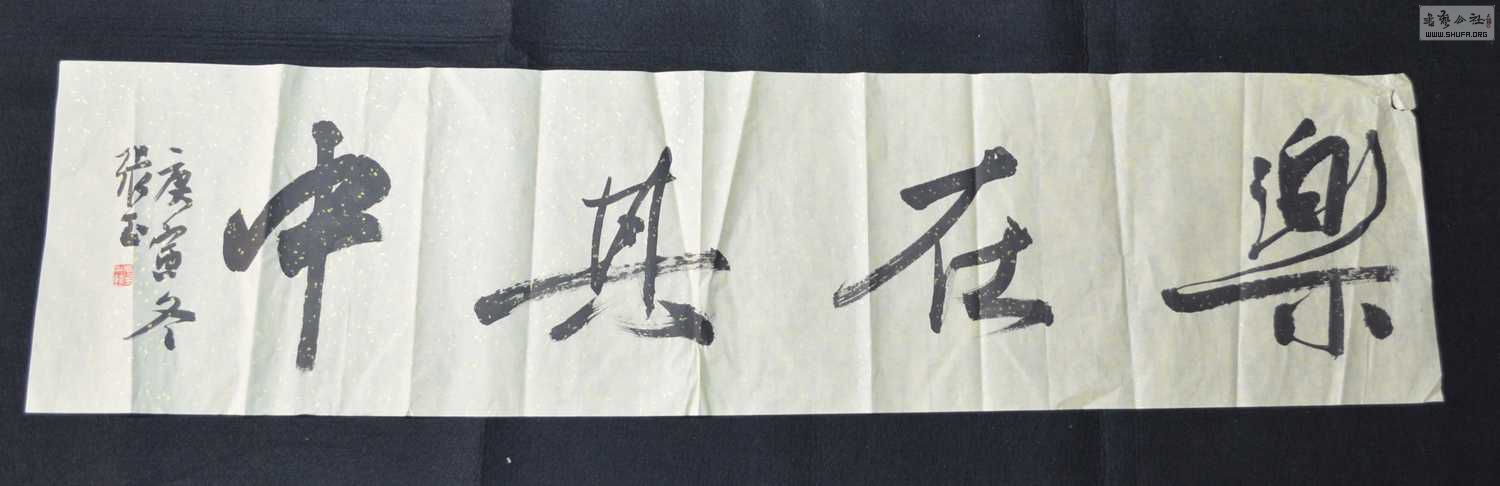 樂在其中
庚寅冬
張玉
書藝公社
WWW.SHUFA.ORG